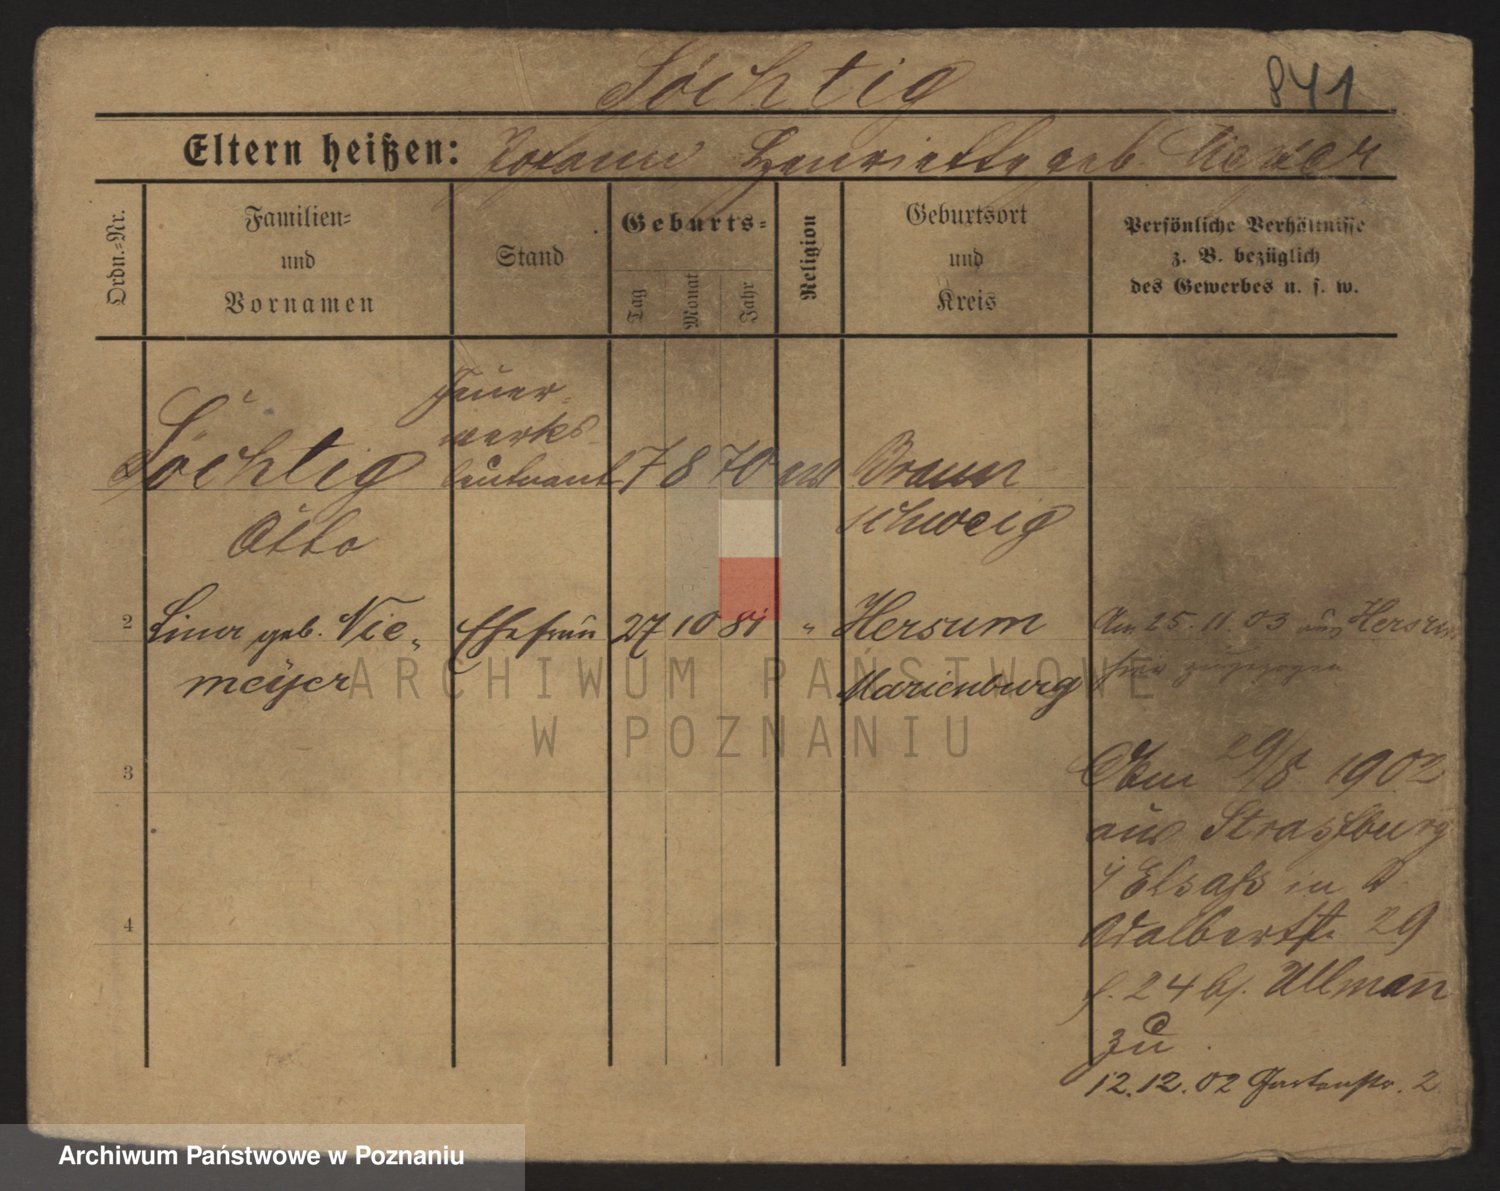 Söchtig
841
Eltern heißen: Johann Henriette geb. Meyer
Ordn.=Nr.
Familien=
und
Vornamen
Stand
Geburts=
Tag
Monat
Jahr
Religion
Geburtsort
und
Kreis
Persönliche Verhältnisse
z. B. bezüglich
des Gewerbes u. s. w.
Söchtig
Otto
Feuer-
werks-
leutnant
7 8 70
Braun
schweig
2 Lina geb. Nie-
meyer
Ehefrau
27 10 81 "
Hersum
Marienburg
Am 25.11.03 aus Hersum
hier zugezogen
3
Am 29/8 1902
aus Straßburg
i/ Elsaß in
4
Adalbertstr. 29
b/. Ullmann
zu
12.12.02 Gartenstr. 2
ARCHIWUM PAŃSTWOWE
W POZNANIU
Archiwum Państwowe w Poznaniu